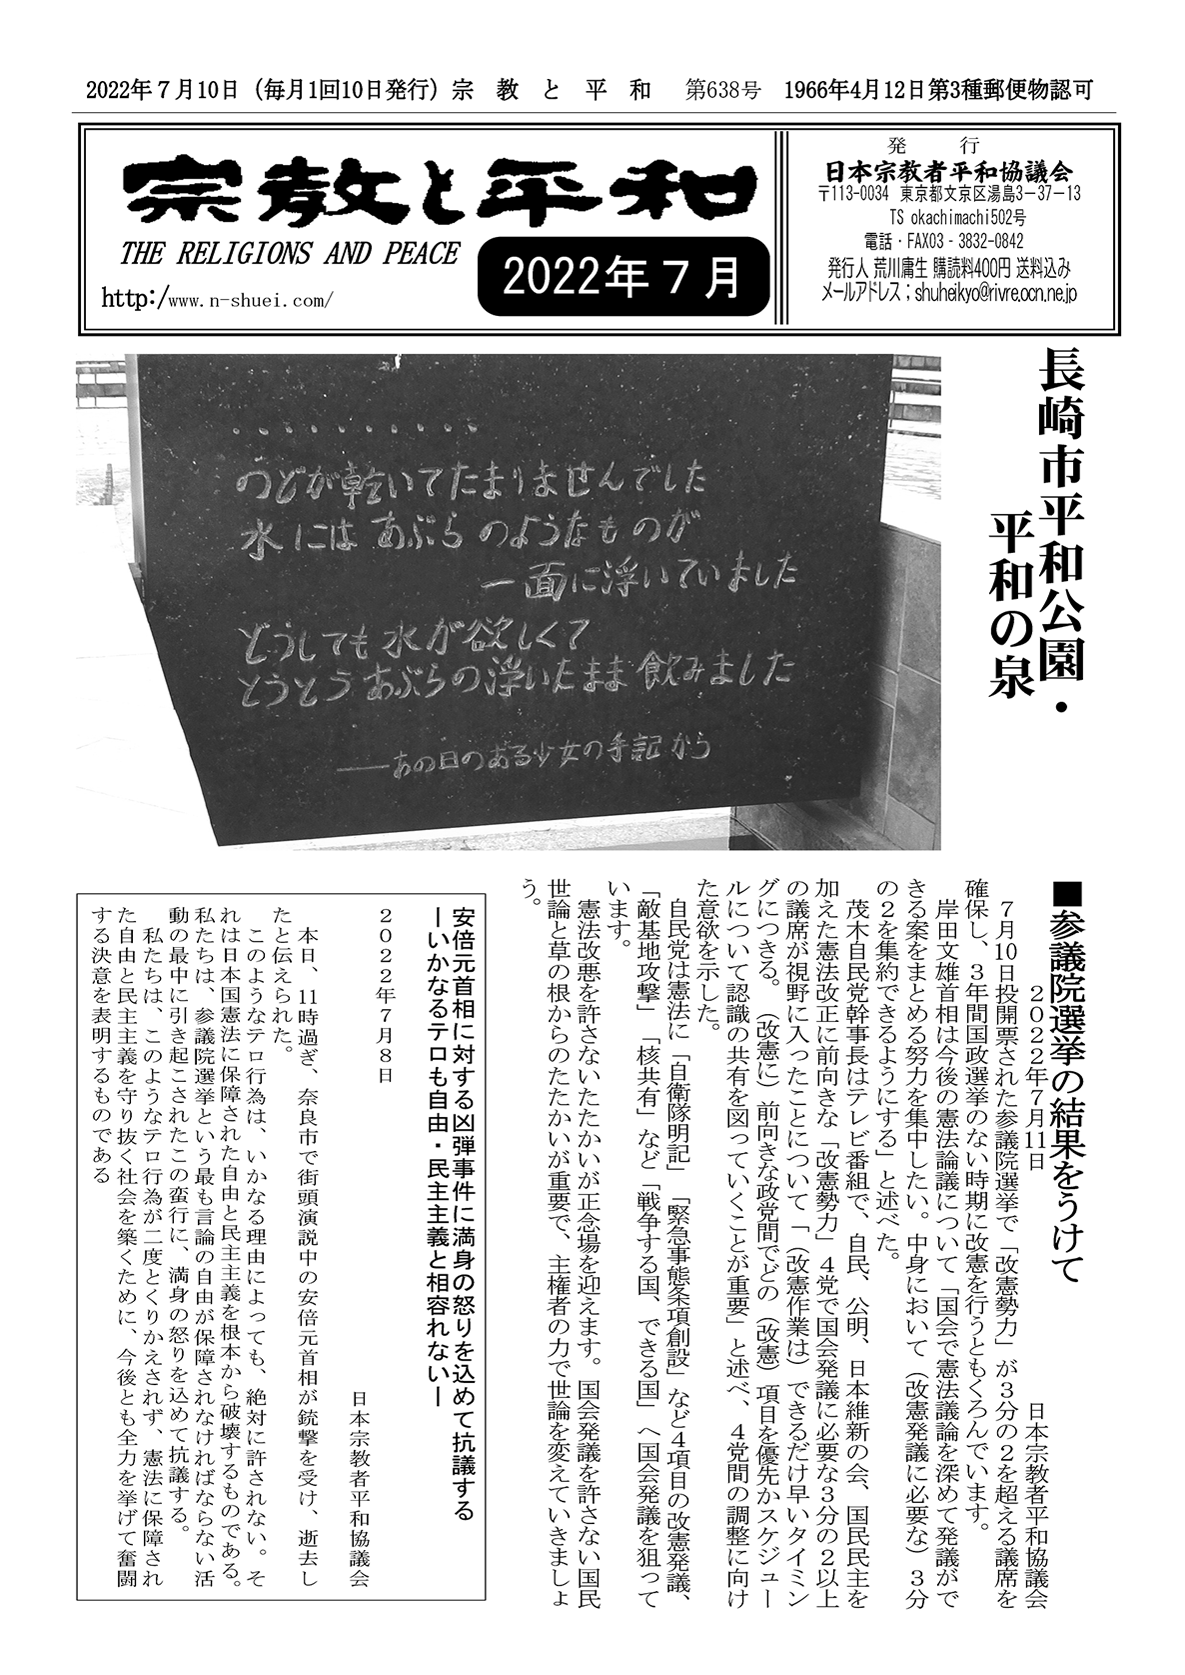 2022年７月10日（毎月1回10日発行）宗　教　と　平　和　第638号　1966年4月12日第3種郵便物認可
宗教と平和
THE RELIGIONS AND PEACE
http:/www.n-shuei.com/
2022年７月
発　行
日本宗教者平和協議会
〒113-0034 東京都文京区湯島3－37－13
TS okachimachi502号
電話・FAX03‐3832-0842
発行人 荒川庸生 購読料400円 送料込み
メールアドレス；shuheikyo@rivre.ocn.ne.jp
長崎市平和公園・
平和の泉
・・・・・・・・・・・
のどが乾いてたまりませんでした
水には あぶらのようなものが
一面に浮いていました
どうしても水が欲しくて
とうとうあぶらの浮いたまま飲みました
――あの日のある少女の手記から
■参議院選挙の結果をうけて
２０２２年７月11日　日本宗教者平和協議会
７月10日投開票された参議院選挙で「改憲勢力」が３分の２を超える議席を
確保し、３年間国政選挙のない時期に改憲を行うともくろんでいます。
岸田文雄首相は今後の憲法論議について「国会で憲法議論を深めて発議がで
きる案をまとめる努力を集中したい。中身において（改憲発議に必要な）３分
の２を集約できるようにする」と述べた。
茂木自民党幹事長はテレビ番組で、自民、公明、日本維新の会、国民民主を
加えた憲法改正に前向きな「改憲勢力」４党で国会発議に必要な３分の２以上
の議席が視野に入ったことについて「（改憲作業は）できるだけ早いタイミン
グにつきる。（改憲に）前向きな政党間でどの（改憲）項目を優先かスケジュー
ルについて認識の共有を図っていくことが重要」と述べ、４党間の調整に向け
た意欲を示した。
自民党は憲法に「自衛隊明記」「緊急事態条項創設」など４項目の改憲発議、
「敵基地攻撃」「核共有」など「戦争する国、できる国」へ国会発議を狙って
います。
憲法改悪を許さないたたかいが正念場を迎えます。国会発議を許さない国民
世論と草の根からのたたかいが重要で、主権者の力で世論を変えていきましょ
う。
安倍元首相に対する凶弾事件に満身の怒りを込めて抗議する
ーいかなるテロも自由・民主主義と相容れないー
２０２２年７月８日
日本宗教者平和協議会
本日、11時過ぎ、奈良市で街頭演説中の安倍元首相が銃撃を受け、逝去し
たと伝えられた。
このようなテロ行為は、いかなる理由によっても、絶対に許されない。そ
れは日本国憲法に保障された自由と民主主義を根本から破壊するものである。
私たちは、参議院選挙という最も言論の自由が保障されなければならない活
動の最中に引き起こされたこの蛮行に、満身の怒りを込めて抗議する。
私たちは、このようなテロ行為が二度とくりかえされず、憲法に保障され
た自由と民主主義を守り抜く社会を築くために、今後とも全力を挙げて奮闘
する決意を表明するものである